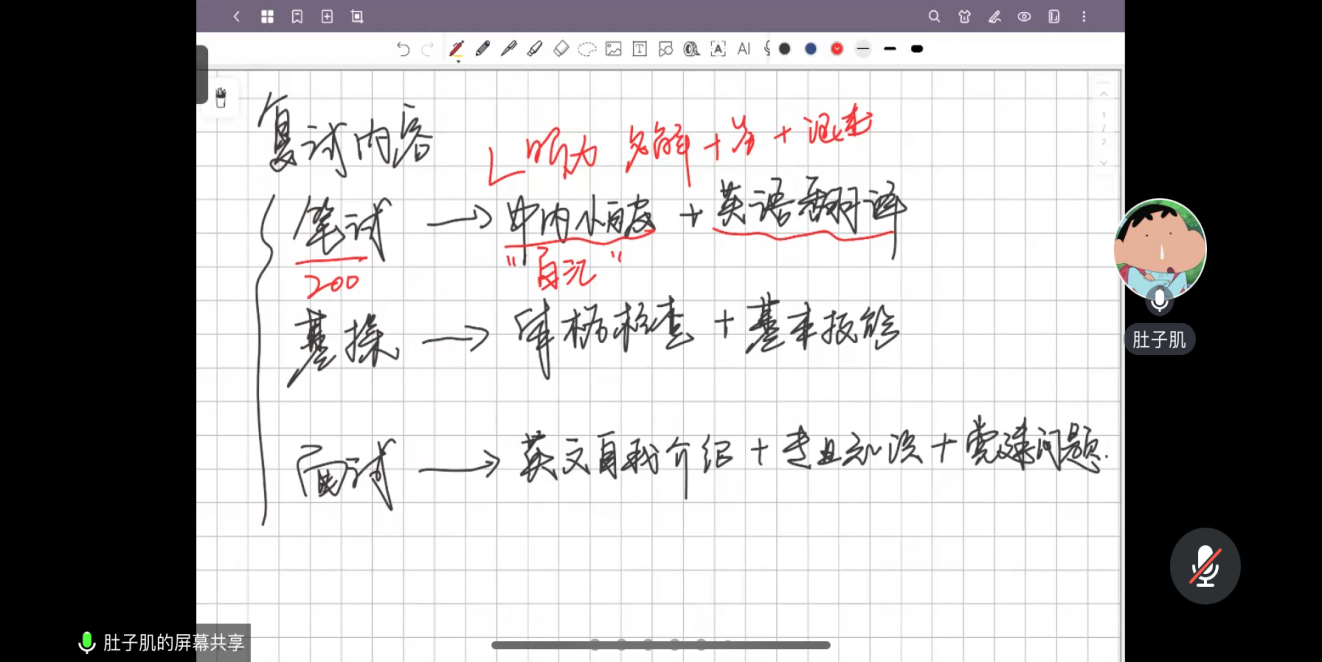 AI
复试内容
听力 名解+简+论述
笔试 → 中内小白皮 + 英语翻译
200
基操 → 体格检查 + 基本技能
肚子肌
面试 → 英文自我介绍 + 专业知识 + 党建问题.
肚子肌的屏幕共享